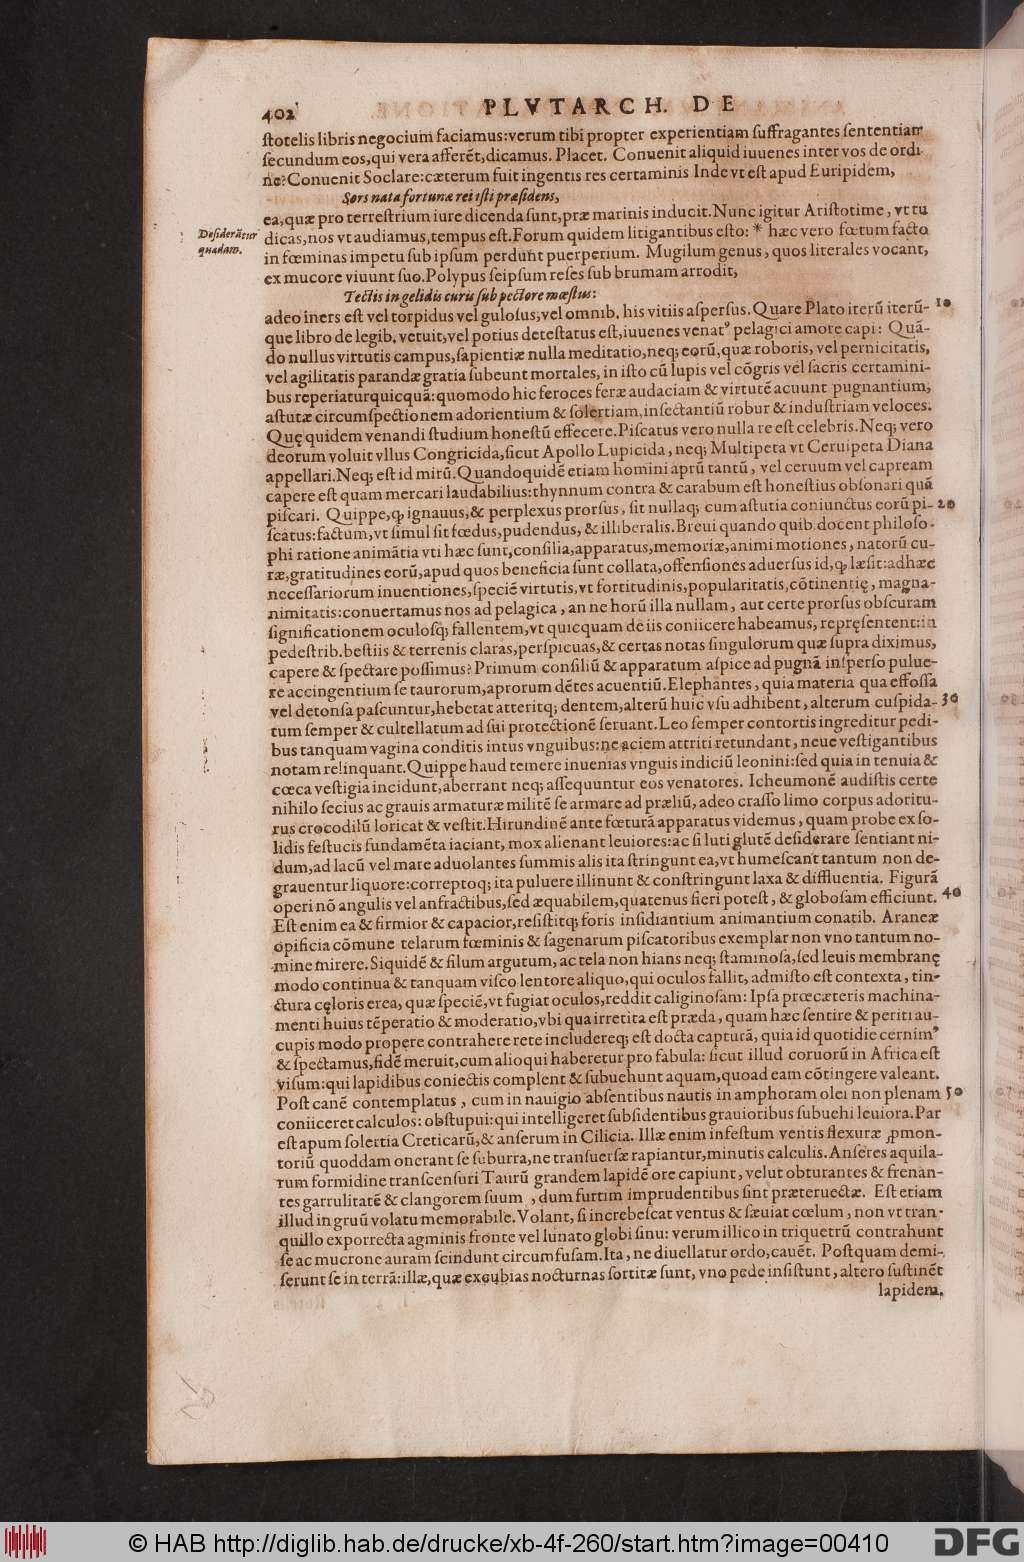 402
PLVTARCH. DE
ſtotelis libris negocium faciamus:verum tibi propter experientiam ſuffragantes ſententiam
ſecundum eos,qui vera afferēt,dicamus. Placet. Conuenit aliquid iuuenes inter vos de ordi
ne?Conuenit Soclare:cæterum fuit ingentis res certaminis Inde vt eſt apud Euripidem,
Sors nata fortunæ rei iſti præſidens,
ea,quæ pro terreſtrium iure dicenda ſunt,præ marinis inducit.Nunc igitur Ariſtotime, vt tu
Deſiderātur
quædam.
dicas,nos vt audiamus,tempus eſt.Forum quidem litigantibus eſto: * hæc vero fœtum facto
in fœminas impetu ſub ipſum perdunt puerperium. Mugilum genus, quos literales vocant,
ex mucore viuunt ſuo.Polypus ſeipſum reſes ſub brumam arrodit,
Tectis in gelidis curis ſub pectore mœſtus:
adeo iners eſt vel torpidus vel guloſus,vel omnib. his vitiis aſperſus.Quare Plato iterū iterū-
10
que libro de legib. vetuit,vel potius deteſtatus eſt,iuuenes venatꝰ pelagici amore capi: Quā-
do nullus virtutis campus,ſapientiæ nulla meditatio,neq; eorū,quæ roboris, vel pernicitatis,
vel agilitatis parandæ gratia ſubeunt mortales, in iſto cū lupis vel cōgris vel ſacris certamini-
bus reperiaturquicquā:quomodo hic feroces feræ audaciam & virtutē acuunt pugnantium,
aſtutæ circumſpectionem adorientium & ſolertiam,inſectantiū robur & induſtriam veloces.
Quę quidem venandi ſtudium honeſtū effecere.Piſcatus vero nulla re eſt celebris.Neq; vero
deorum voluit vllus Congricida,ſicut Apollo Lupicida, neq; Multipeta vt Ceruipeta Diana
appellari.Neq; eſt id mirū.Quandoquidē etiam homini aprū tantū, vel ceruum vel capream
capere eſt quam mercari laudabilius:thynnum contra & carabum eſt honeſtius obſonari quā
piſcari. Quippe,ꝙ ignauus,& perplexus prorſus, ſit nullaq; cum aſtutia coniunctus eorū pi-
20
ſcatus:factum,vt ſimul ſit fœdus,pudendus, & illiberalis.Breui quando quib.docent philoſo-
phi ratione animātia vti hæc ſunt,conſilia,apparatus,memoriæ,animi motiones, natorū cu-
ræ,gratitudines eorū,apud quos beneficia ſunt collata,offenſiones aduerſus id,ꝙ læſit:adhæc
neceſſariorum inuentiones,ſpeciē virtutis,vt fortitudinis,popularitatis,cōtinentię, magna-
nimitatis:conuertamus nos ad pelagica, an ne horū illa nullam, aut certe prorſus obſcuram
ſignificationem oculoſq; fallentem,vt quicquam de iis coniicere habeamus, repręſentent:in
pedeſtrib.beſtiis & terrenis claras,perſpicuas,& certas notas ſingulorum quæ ſupra diximus,
capere & ſpectare poſſimus?Primum conſiliū & apparatum aſpice ad pugnā inſperſo puluе-
re accingentium ſe taurorum,aprorum dētes acuentiū.Elephantes, quia materia qua effoſſa
vel detonſa paſcuntur,hebetat atteritq; dentem,alterū huic vſu adhibent, alterum cuſpida-
30
tum ſemper & cultellatum ad ſui protectionē ſeruant.Leo ſemper contortis ingreditur pedi-
bus tanquam vagina conditis intus vnguibus:ne aciem attriti retundant, neue veſtigantibus
notam relinquant.Quippe haud temere inuenias vnguis indiciū leonini:ſed quia in tenuia &
cœca veſtigia incidunt,aberrant neq; aſſequuntur eos venatores. Icheumonē audiſtis certe
nihilo ſecius ac grauis armaturæ militē ſe armare ad præliū, adeo craſſo limo corpus adoritu-
rus crocodilū loricat & veſtit.Hirundinē ante fœturā apparatus videmus, quam probe ex ſo-
lidis feſtucis fundamēta iaciant, mox alienant leuiores:ac ſi luti glutē deſiderare ſentiant ni-
dum,ad lacū vel mare aduolantes ſummis alis ita ſtringunt ea,vt humeſcant tantum non de-
grauentur liquore:correptoq; ita puluere illinunt & conſtringunt laxa & diffluentia. Figurā
operi nō angulis vel anfractibus,ſed æquabilem,quatenus fieri poteſt, & globoſam efficiunt.
40
Eſt enim ea & firmior & capacior,reſiſtitq; foris inſidiantium animantium conatib. Araneæ
opificia cōmune telarum fœminis & ſagenarum piſcatoribus exemplar non vno tantum no-
mine mirere.Siquidē & filum argutum, ac tela non hians neq; ſtaminoſa,ſed leuis membranę
modo continua & tanquam viſco lentore aliquo,qui oculos fallit, admiſto eſt contexta, tin-
ctura cęloris erea, quæ ſpeciē,vt fugiat oculos,reddit caliginoſam: Ipſa prœcæteris machina-
menti huius tēperatio & moderatio,vbi qua irretita eſt præda, quam hæc ſentire & periti au-
cupis modo propere contrahere rete includereq; eſt docta capturā, quia id quotidie cernimꝰ
& ſpectamus,fidē meruit,cum alioqui haberetur pro fabula: ſicut illud coruorū in Africa eſt
viſum:qui lapidibus coniectis complent & ſubuehunt aquam,quoad eam cōtingere valeant.
Poſt canē contemplatus, cum in nauigio abſentibus nautis in amphoram olei non plenam
50
coniiceret calculos: obſtupui:qui intelligeret ſubſidentibus grauioribus ſubuehi leuiora.Par
eſt apum ſolertia Creticarū,& anſerum in Cilicia. Illæ enim infeſtum ventis flexuræ ꝓmon-
toriū quoddam onerant ſe ſuburra,ne tranſuerſæ rapiantur,minutis calculis.Anſeres aquila-
rum formidine tranſcenſuri Taurū grandem lapidē ore capiunt, velut obturantes & frenan-
tes garrulitatē & clangorem ſuum, dum furtim imprudentibus ſint præteruectæ. Eſt etiam
illud in gruū volatu memorabile.Volant, ſi increbeſcat ventus & ſæuiat cœlum, non vt tran-
quillo exporrecta agminis fronte vel lunato globi ſinu: verum illico in triquetrū contrahunt
ſe ac mucrone auram ſcindunt circumfuſam.Ita, ne diuellatur ordo,cauēt. Poſtquam demi-
ſerunt ſe in terrā:illæ,quæ excubias nocturnas ſortitæ ſunt, vno pede inſiſtunt, altero ſuſtinēt
lapidem.
© HAB http://diglib.hab.de/drucke/xb-4f-260/start.htm?image=00410
DFG